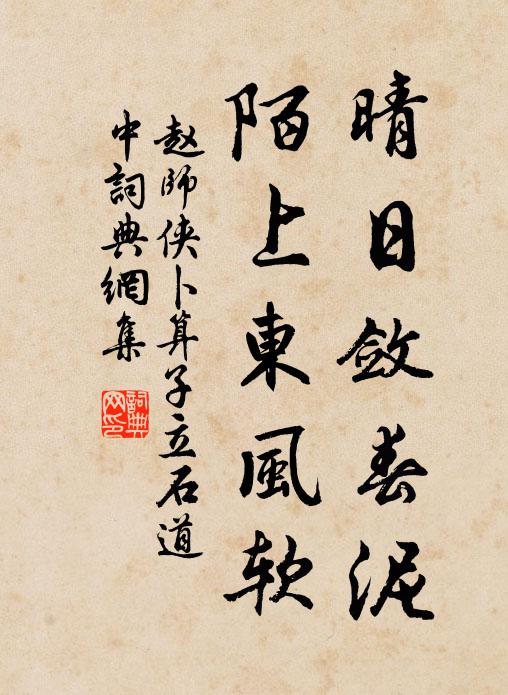 晴日斂春泥
陌上東風软
赵師侠卜算子立石道
中詞典網集
詞典网印